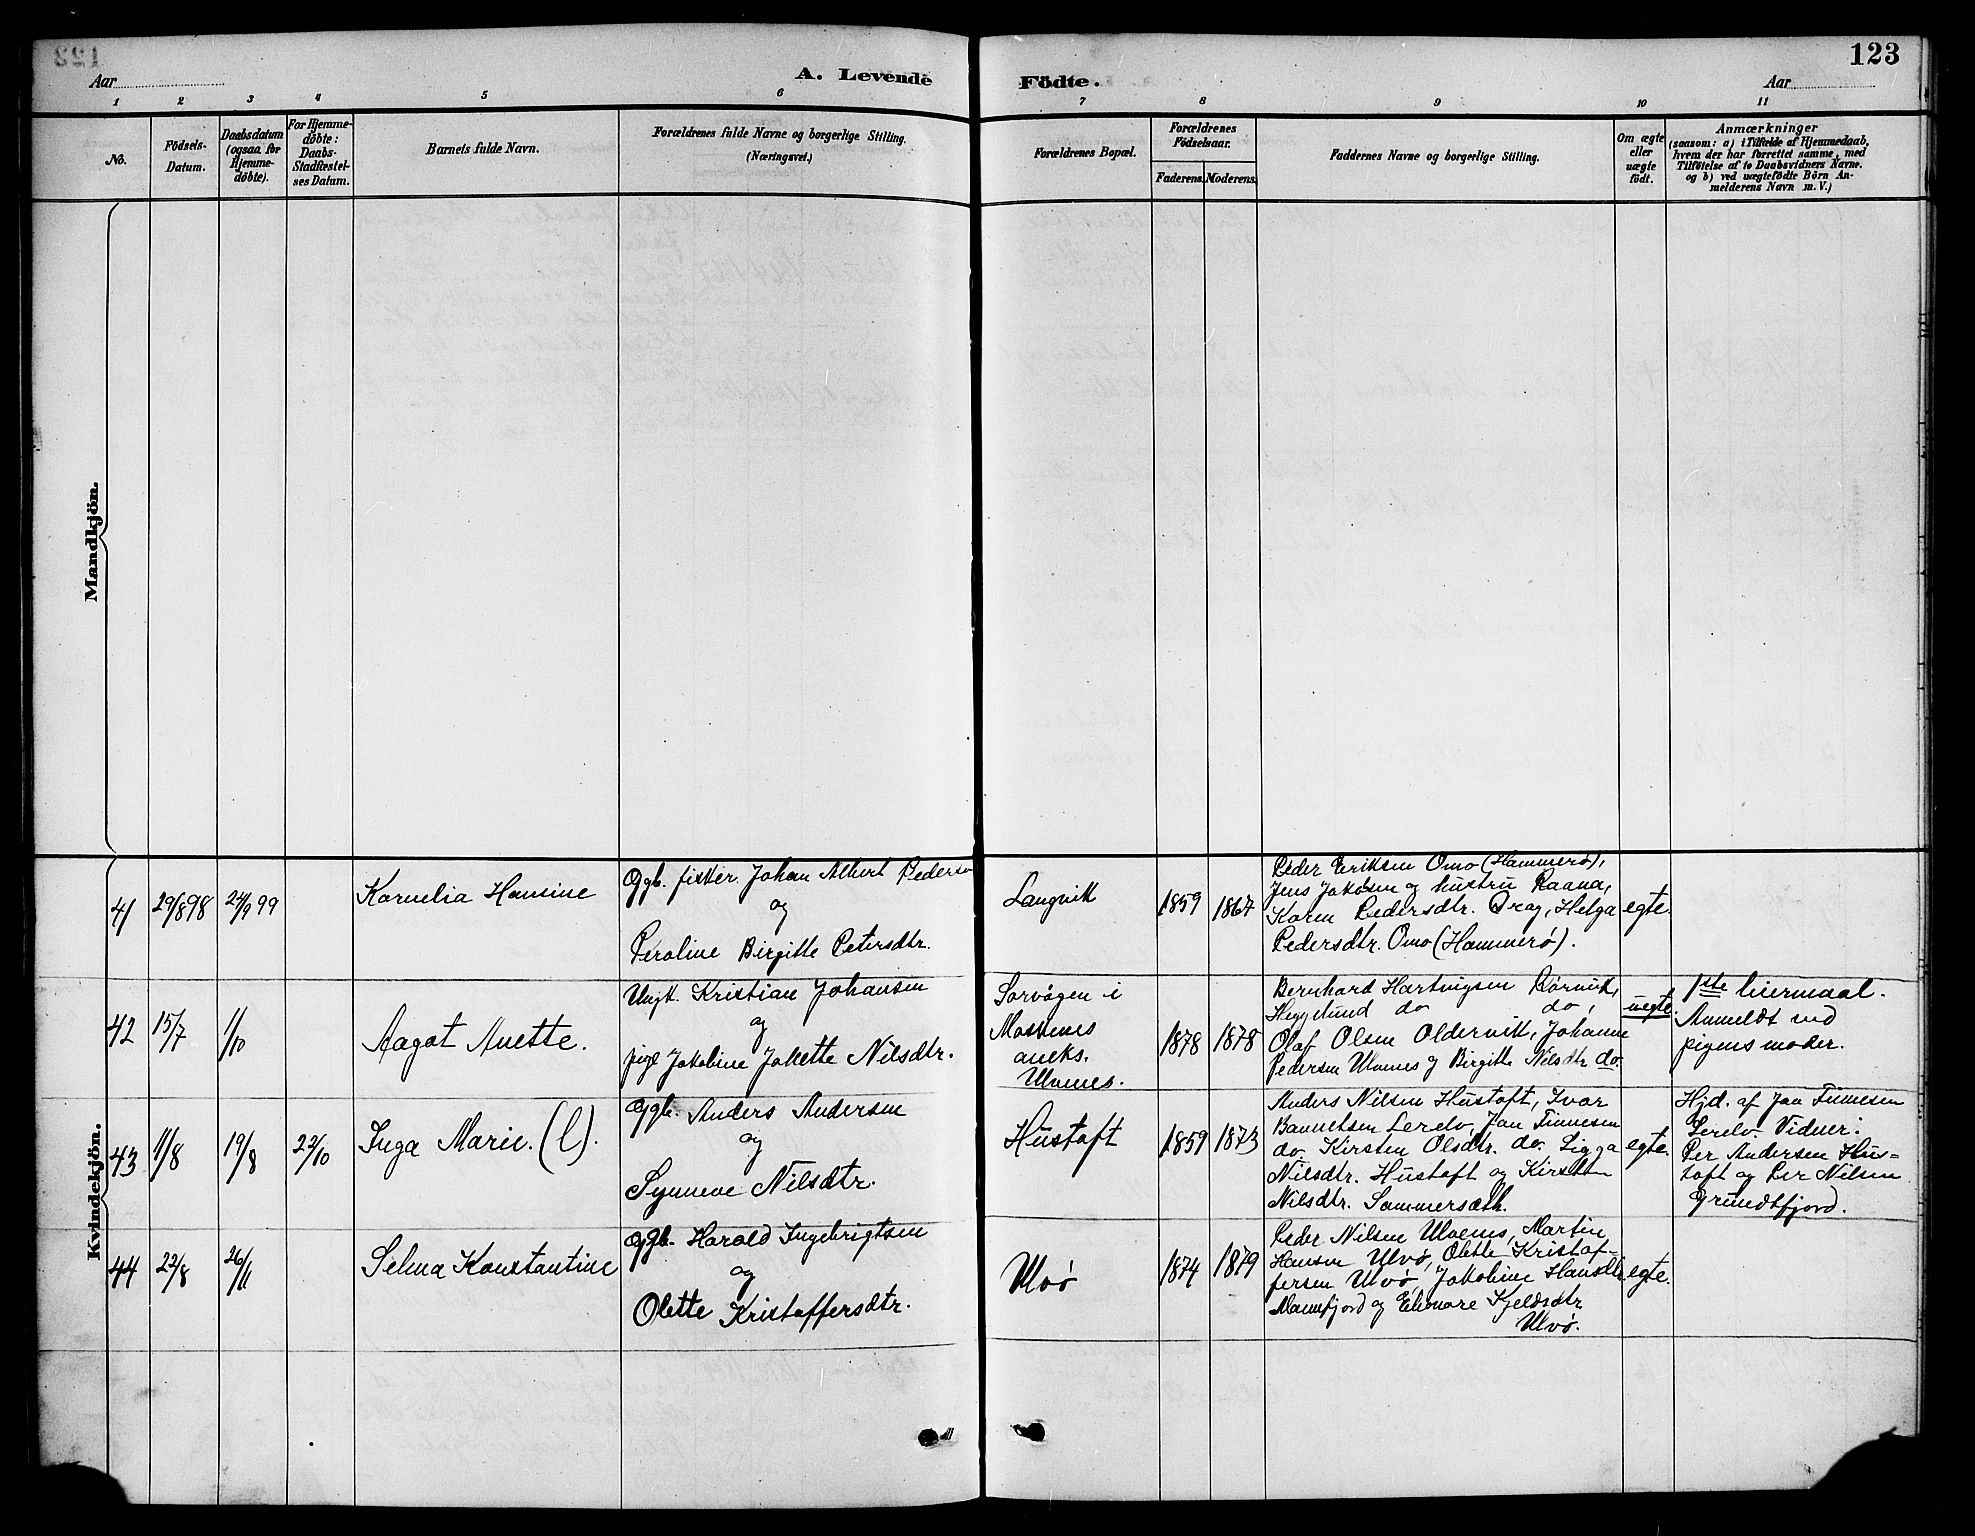 123
Aar
A. Levende
Födte.
Aar
1 2 3 4 5 6 7 8 9 10 11
No.
Födsels-
Datum.
Daabsdatum
(ogsaa for
Hjemme-
döbte).
For Hjemme-
döbte:
Daabs-
Stadfæstel-
ses Datum.
Barnets fulde Navn.
Forældrenes fulde Navne og borgerlige Stilling.
(Næringsvei.)
Forældrenes Bopæl.
Forældrenes
Födselsaar.
Faderens. Moderens.
Faddernes Navne og borgerlige Stilling.
Om ægte
eller
uægte
födt.
Anmærkninger
(saasom: a) i Tilfælde af Hjemmedaab,
hvem der har forrettet samme, med
Tilföielse af to Daabsvidners Navne.
og b) ved uægtefödte Börn An-
melderens Navn m. V.)
Mandkjön.
Kvindekjön.
41
29/8 98
24/9 99
Kornelia Hansine
Ggb. fisker. Johan Albert Pedersen
og
Peroline Birgitte Petersdtr.
Langvik
1859
1867
Peder Eriksen Omo (Hammerø),
Jens Jakobsen og hustru Raana,
Karen Pedersdtr. Drag, Helga
Pedersdtr. Omo (Hammerø).
egte.
42
15/7
1/10
Aagot Anette.
Ungk. Kristian Johansen
og
pige Jakobine Jakette Nilsdtr.
Sørvågen i
Moskenes
aneks.
Ulvenes.
1878
1878
Bernhard Hartvigsen Rørvik,
Heggelund do do,
Olaf Olsen Oldervik, Johanne
Pedersen Ulvenes og Birgitte Nilsdtr do.
uegte.
1ste leiermaal.
Anmeldt ved
pigens moder.
43
11/8
19/8
22/10
Inga Marie. (l).
Ggb. Anders Andersen
og
Synneve Nilsdtr.
Hustoft
1859
1873
Anders Nilsen Hustoft, Ivar
Lerelv, Jan Finnesen
do. Kirsten Olsdtr. do. Sigga
Nilsdtr. Hustoft og Kirsten
Nilsdtr. Sommersæth.
egte.
Hjd. af Jan Finnesen
Lerelv. Vidner:
Per Andersen Hus-
toft og Per Nilsen
Grundtfjord.
44
22/8
26/11
Selma Konstantine
Ggb. Harald Ingebrigtsen
og
Olette Kristoffersdtr.
Ulvø
1874
1879
Peder Nilsen Ulvenes, Martin
Hansen Ulvø, Olette Kristof-
fersen Ulvø, Jakobine Hansdtr
Mannfjord og Elionore Kjeldsdtr
Ulvø.
egte.